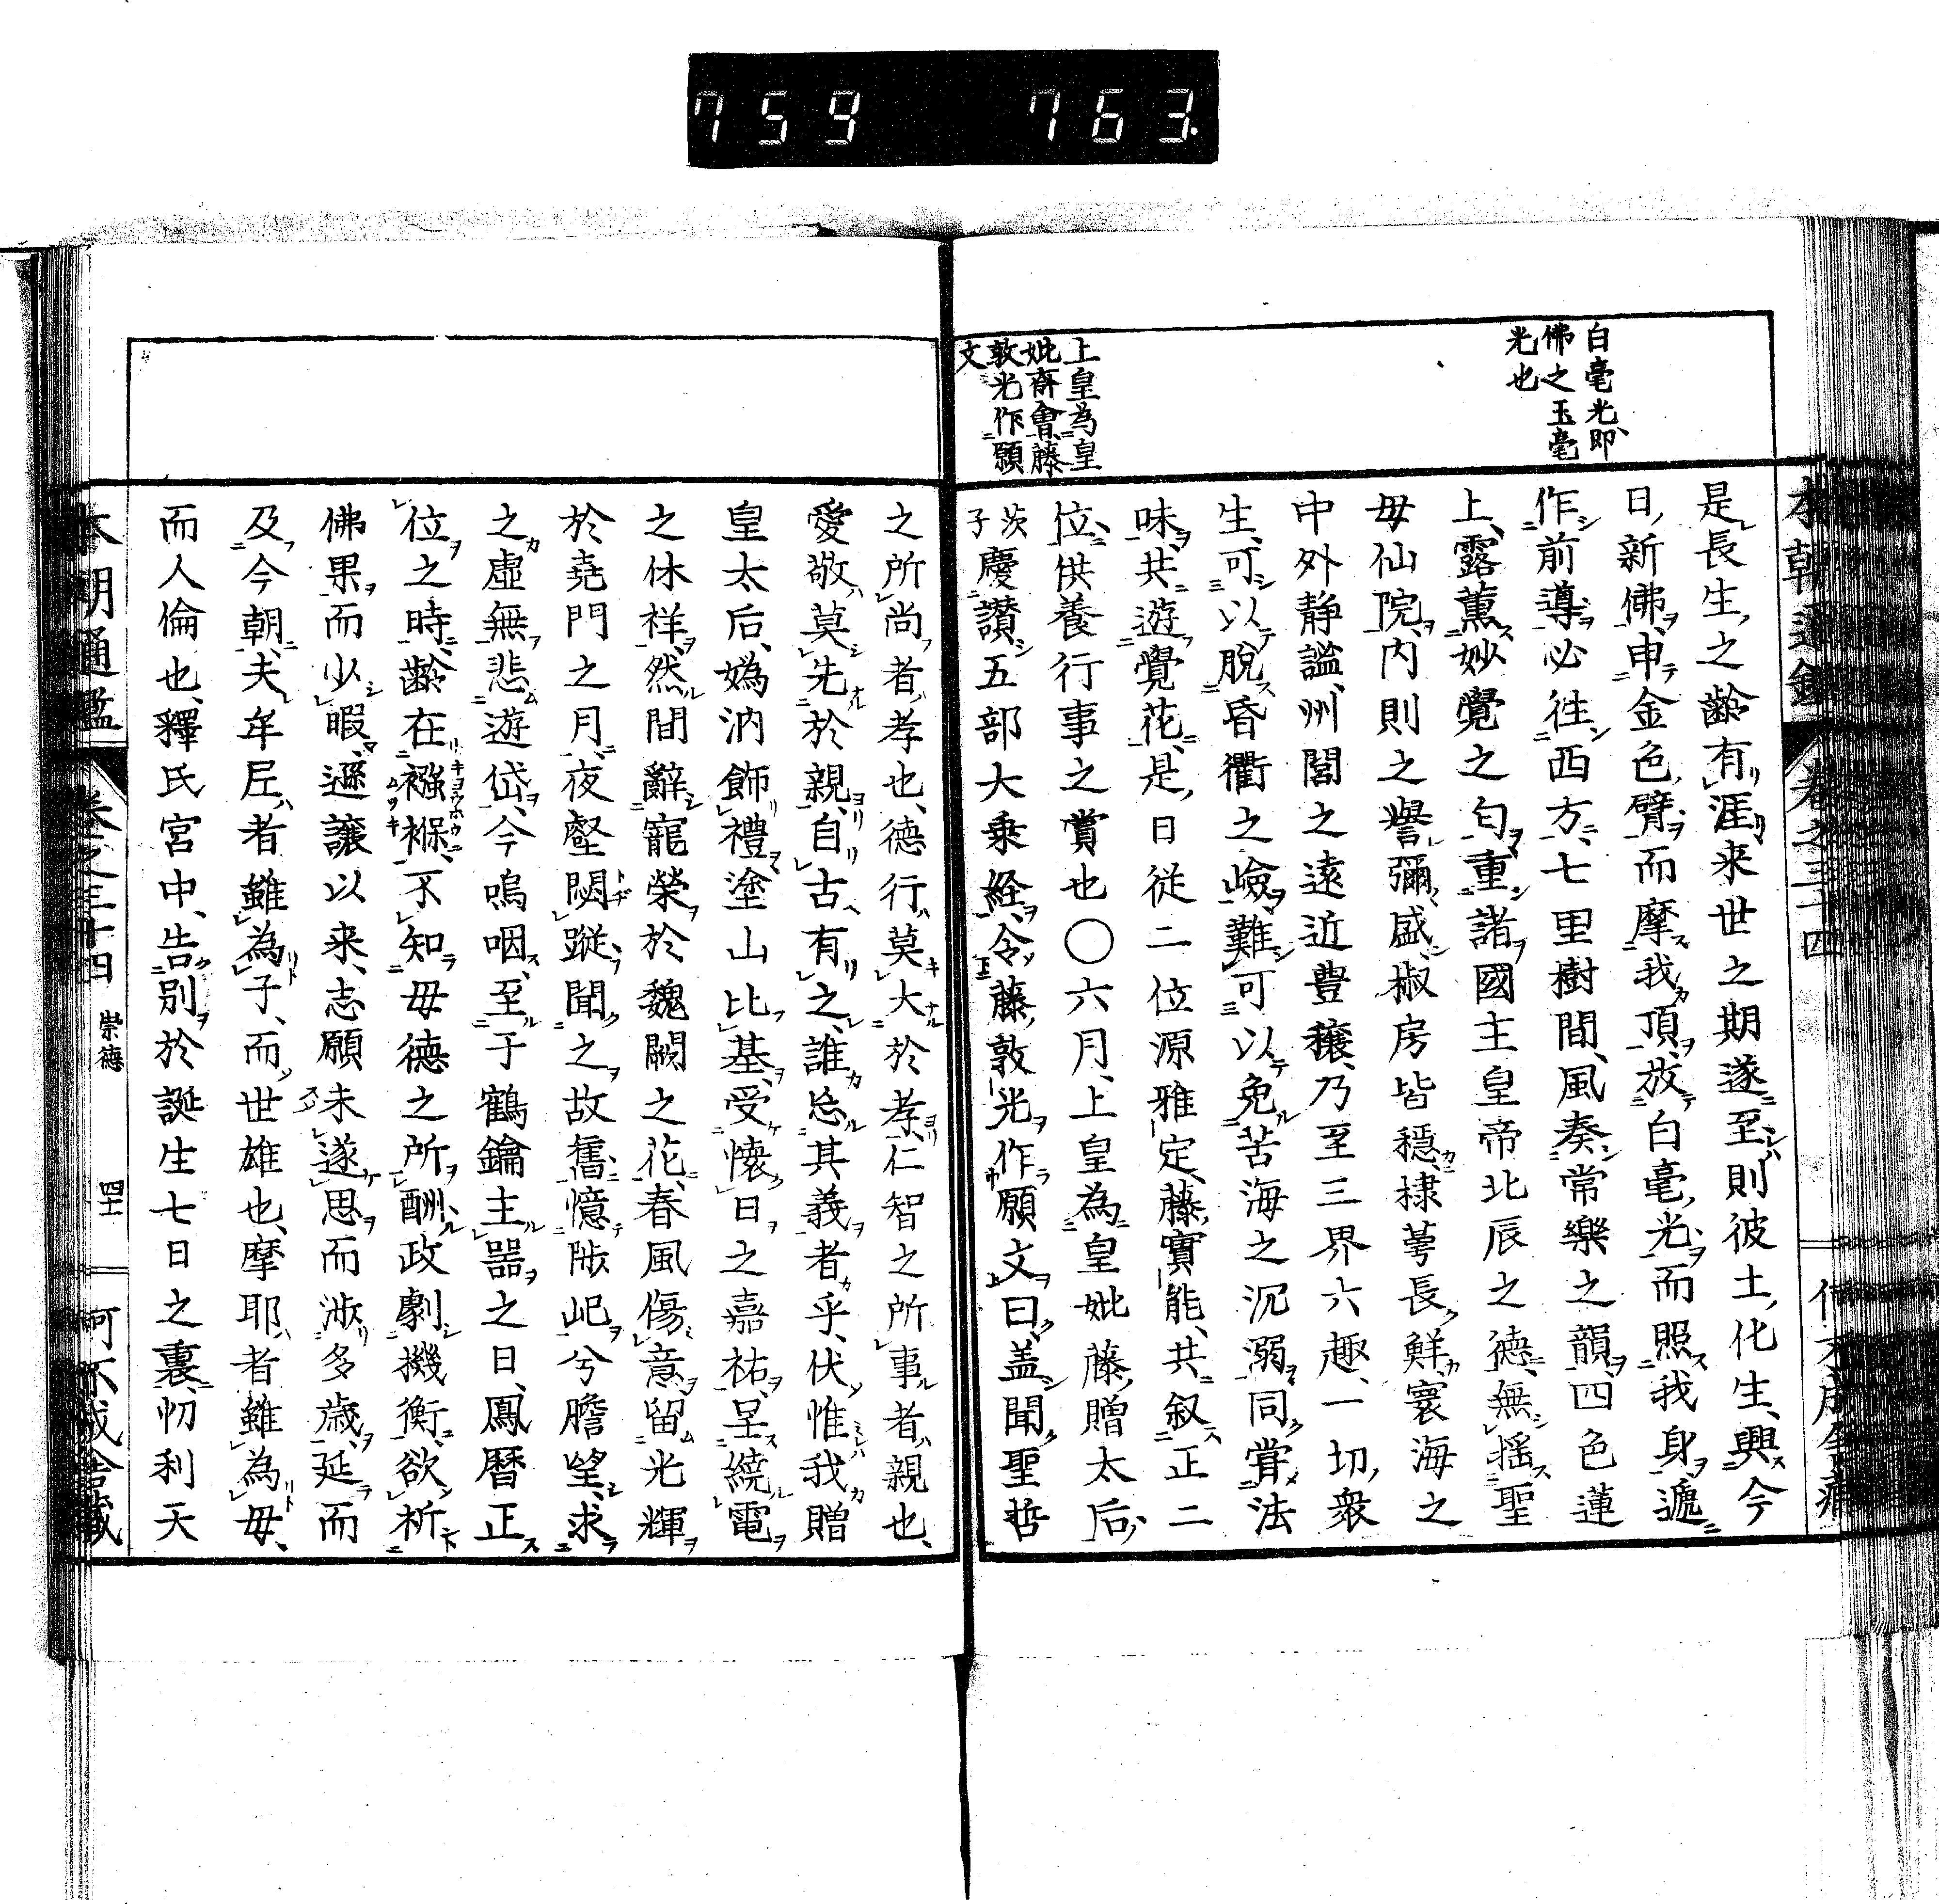 759 763.
白毫光即
佛之玉毫
光也
上皇為皇
妣齊會藤
敦光作願
文
是長生之齡有涯来世之期遂至則彼土化生興今
日新佛申金色臂而摩我頂放白毫光而照我身遞
作前導必徃西方七里樹間風奏常樂之韻四色蓮
上露薫妙覺之匂重諸國主皇帝北辰之德無揺聖
母仙院内則之譽彌盛椒房皆穩棣萼長鮮寰海之
中外静謐州閭之遠近豊穰乃至三界六趣一切衆
生可以脱昏衢之嶮難可以免苦海之沉溺同甞法
味共遊覺花是日従二位源雅定藤實能共叙正二
位供養行事之賞也○六月上皇為皇妣藤贈太后
茨子慶讃五部大乗経令藤敦光作願文曰盖聞聖哲
之所尚者孝也德行莫大於孝仁智之所事者親也
愛敬莫先於親自古有之誰忘其義者乎伏惟我贈
皇太后嬀汭飾禮塗山比基受懷日之嘉祐呈繞電
之休祥然間辭寵榮於魏闕之花春風傷意留光輝
於堯門之月夜壑閟蹤聞之故舊憶陟屺兮瞻望求
之虛無悲遊岱今嗚咽至于鶴鑰主噐之日鳳暦正
位之時齡在襁褓不知母德之所酬政劇機衡欲祈
佛果而少暇遜譲以来志願未遂思而渉多歳延而
及今朝夫牟尼者雖為子而世雄也摩耶者雖為母
而人倫也釋氏宮中告別於誕生七日之裏忉利天
本朝通鑑 卷之三十四 崇德 四十